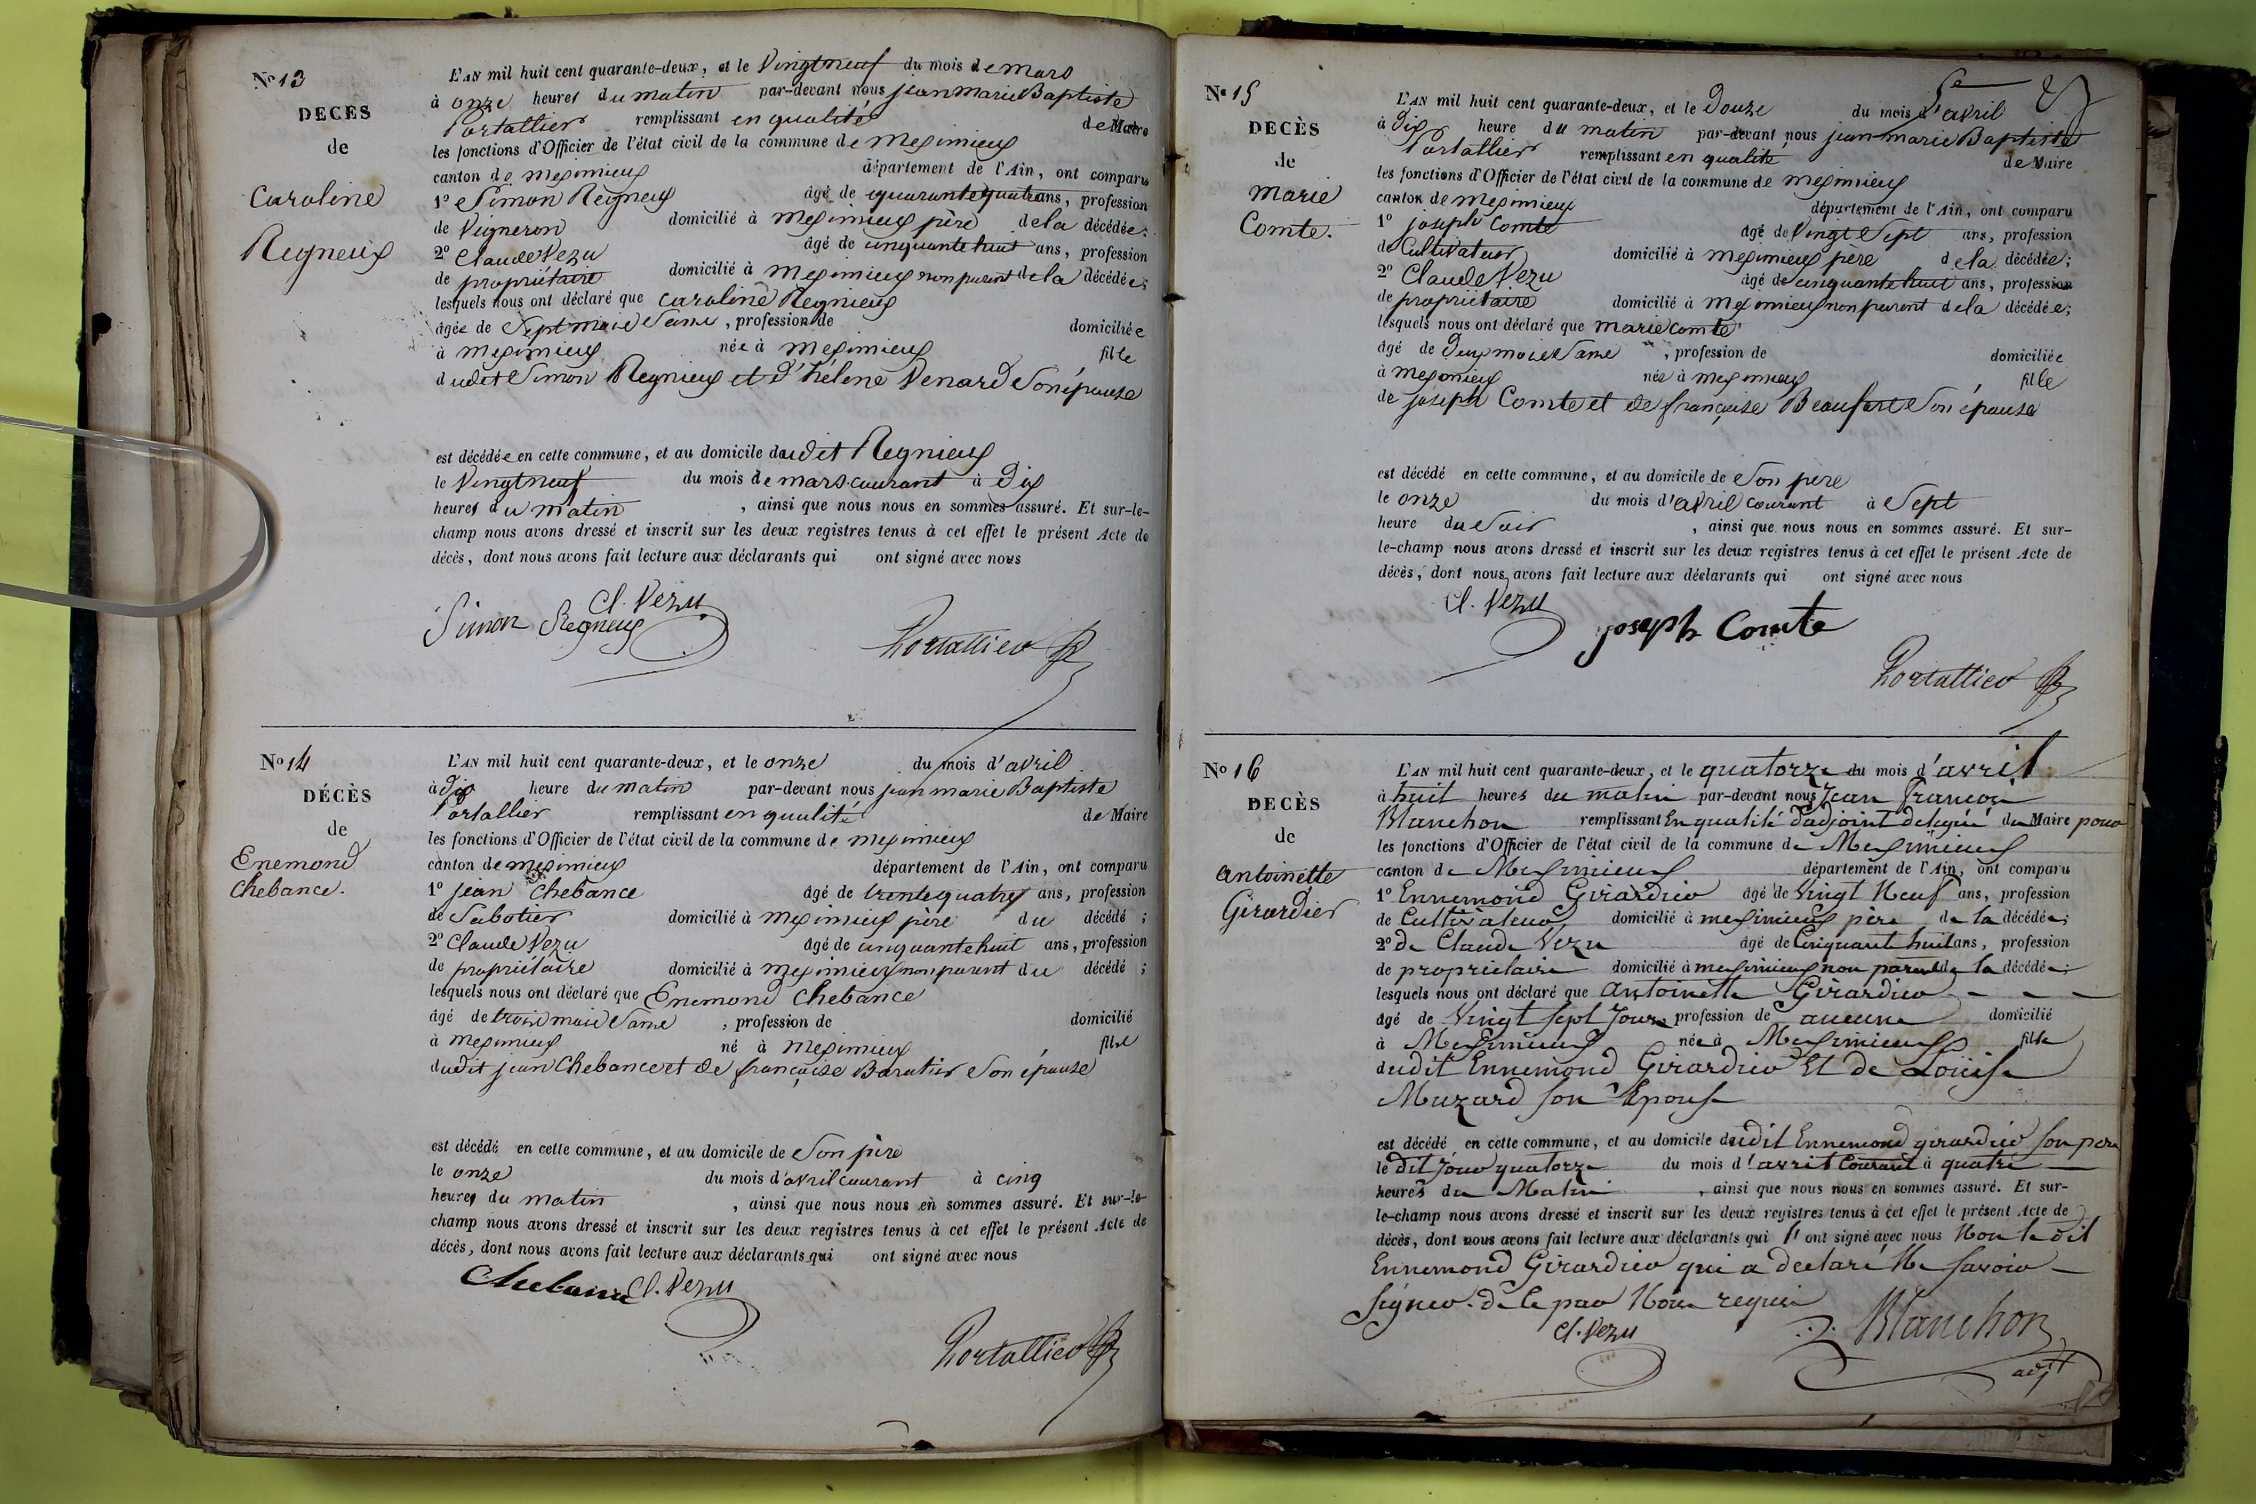 Nº 13
DECÈS
de
Caroline
Regnieux
L'AN mil huit cent quarante-deux, et le Vingtneuf du mois de mars
à onze heures du matin par-devant nous jean marie Baptiste
Portallier remplissant en qualité de Maire
les fonctions d'Officier de l'état civil de la commune de meximieux
canton de meximieux département de l'Ain, ont comparu
1º Simon Regnieux âgé de quarante quatre ans, profession
de Vigneron domicilié à meximieux père de la décédée;
2º Claude Vezu âgé de cinquante huit ans, profession
de propriétaire domicilié à meximieux non parent de la décédée;
lesquels nous ont déclaré que caroline Regnieux
âgée de Sept mois Sans, profession de domiciliée
à meximieux née à meximieux fille
dudit Simon Regnieux et d'hélene Venard Son épouse
est décédée en cette commune, et au domicile dudit Regnieux
le Vingtneuf du mois de mars courant à Dix
heures du matin, ainsi que nous nous en sommes assuré. Et sur-le-
champ nous avons dressé et inscrit sur les deux registres tenus à cet effet le présent Acte de
décès, dont nous avons fait lecture aux déclarants qui ont signé avec nous
Cl. Vezu
Simon Regneux
Portallier
Nº 14
DÉCÈS
de
Enemond
Chebance.
L'AN mil huit cent quarante-deux, et le onze du mois d'avril
à dix heure du matin par-devant nous jean marie Baptiste
Portallier remplissant en qualité de Maire
les fonctions d'Officier de l'état civil de la commune de meximieux
canton de meximieux département de l'Ain, ont comparu
1º jean Chebance âgé de trente quatre ans, profession
de Sabotier domicilié à meximieux père du décédé;
2º Claude Vezu âgé de cinquante huit ans, profession
de propriétaire domicilié à meximieux non parent du décédé;
lesquels nous ont déclaré que Enemond Chebance
âgé de trois mois Sans, profession de domicilié
à meximieux né à meximieux fils
dudit jean Chebance et de françoise Baratier Son épouse
est décédé en cette commune, et au domicile de Son père
le onze du mois d'avril courant à cinq
heures du matin, ainsi que nous nous en sommes assuré. Et sur-le-
champ nous avons dressé et inscrit sur les deux registres tenus à cet effet le présent Acte de
décès, dont nous avons fait lecture aux déclarants qui ont signé avec nous
Chebance Cl. Vezu
Portallier
Nº 15
DECÈS
de
Marie
Comte.
L'AN mil huit cent quarante-deux, et le Douze du mois d'avril
à Dix heure du matin par-devant nous jean-marie Baptiste
Portallier remplissant en qualité de Maire
les fonctions d'Officier de l'état civil de la commune de meximieux
canton de meximieux département de l'Ain, ont comparu
1º joseph Comte âgé de Vingt Sept ans, profession
de Cultivateur domicilié à meximieux père de la décédée;
2º Claude Vezu âgé de cinquante huit ans, profession
de propriétaire domicilié à meximieux non parent de la décédée;
lesquels nous ont déclaré que marie comte
âgé de Deux mois Sans, profession de domiciliée
à meximieux née à meximieux fille
de joseph Comte et de françoise Beaufort Son épouse
est décédé en cette commune, et au domicile de Son père
le onze du mois d'avril courant à Sept
heure du Soir, ainsi que nous nous en sommes assuré. Et sur-
le-champ nous avons dressé et inscrit sur les deux registres tenus à cet effet le présent Acte de
décès, dont nous avons fait lecture aux déclarants qui ont signé avec nous
Cl. Vezu
joseph Comte
Portallier
Nº 16
DECÈS
de
Antoinette
Girardier
L'AN mil huit cent quarante-deux, et le quatorze du mois d'avril
à huit heures du matin par-devant nous Jean françois
Blanchon remplissant En qualité d'adjoint délégué du Maire pour
les fonctions d'Officier de l'état civil de la commune de Meximieux
canton de Meximieux département de l'Ain, ont comparu
1º Ennemond Girardier âgé de Vingt Neuf ans, profession
de Cultivateur domicilié à meximieux père de la décédée;
2º de Claude Vezu âgé de Cinquant huit ans, profession
de propriétaire domicilié à meximieux non parent de la décédée;
lesquels nous ont déclaré que Antoinette Girardier
âgé de Vingt sept Jours profession de aucune domicilié
à Meximieux née à Meximieux fille
dudit Ennemond Girardier Et de Louise
Muzard son Epouse
est décédé en cette commune, et au domicile dudit Ennemond girardier son pere
le dit jour quatorze du mois d'avril Courant à quatre
heures du Matin, ainsi que nous nous en sommes assuré. Et sur-
le-champ nous avons dressé et inscrit sur les deux registres tenus à cet effet le présent Acte de
décès, dont nous avons fait lecture aux déclarants qui ont signé avec nous Non le dit
Ennemond Girardier qui a declaré Ne savoir
signer. de ce par Nous requis
Cl. Vezu Blanchon
adjt